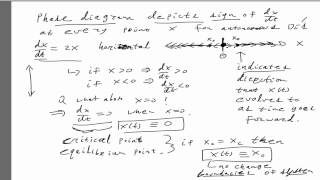 Phase diagram depicts sign of dx/dt
at every point x for autonomous
dx/dt = 2x horizontal x₀ x₀ x
↳ if x>0 ⇒ dx/dt >0
if x<0 ⇒ dx/dt <0
indicates
direction
that x(t)
evolves to
as time goes
forward.
Q what about x=0 ?
⇒ dx/dt = 0 when x=0
⇒ x(t) ≡ 0
critical point } if x₀ = x_c then
equilibrium point. x(t) ≡ x₀
(no change
of system